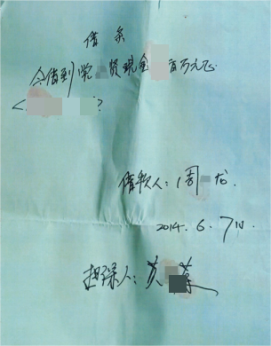 借条
今借到 现金 百万元正
< >
借款人：周 龙.
2014.6.7日.
担保人：